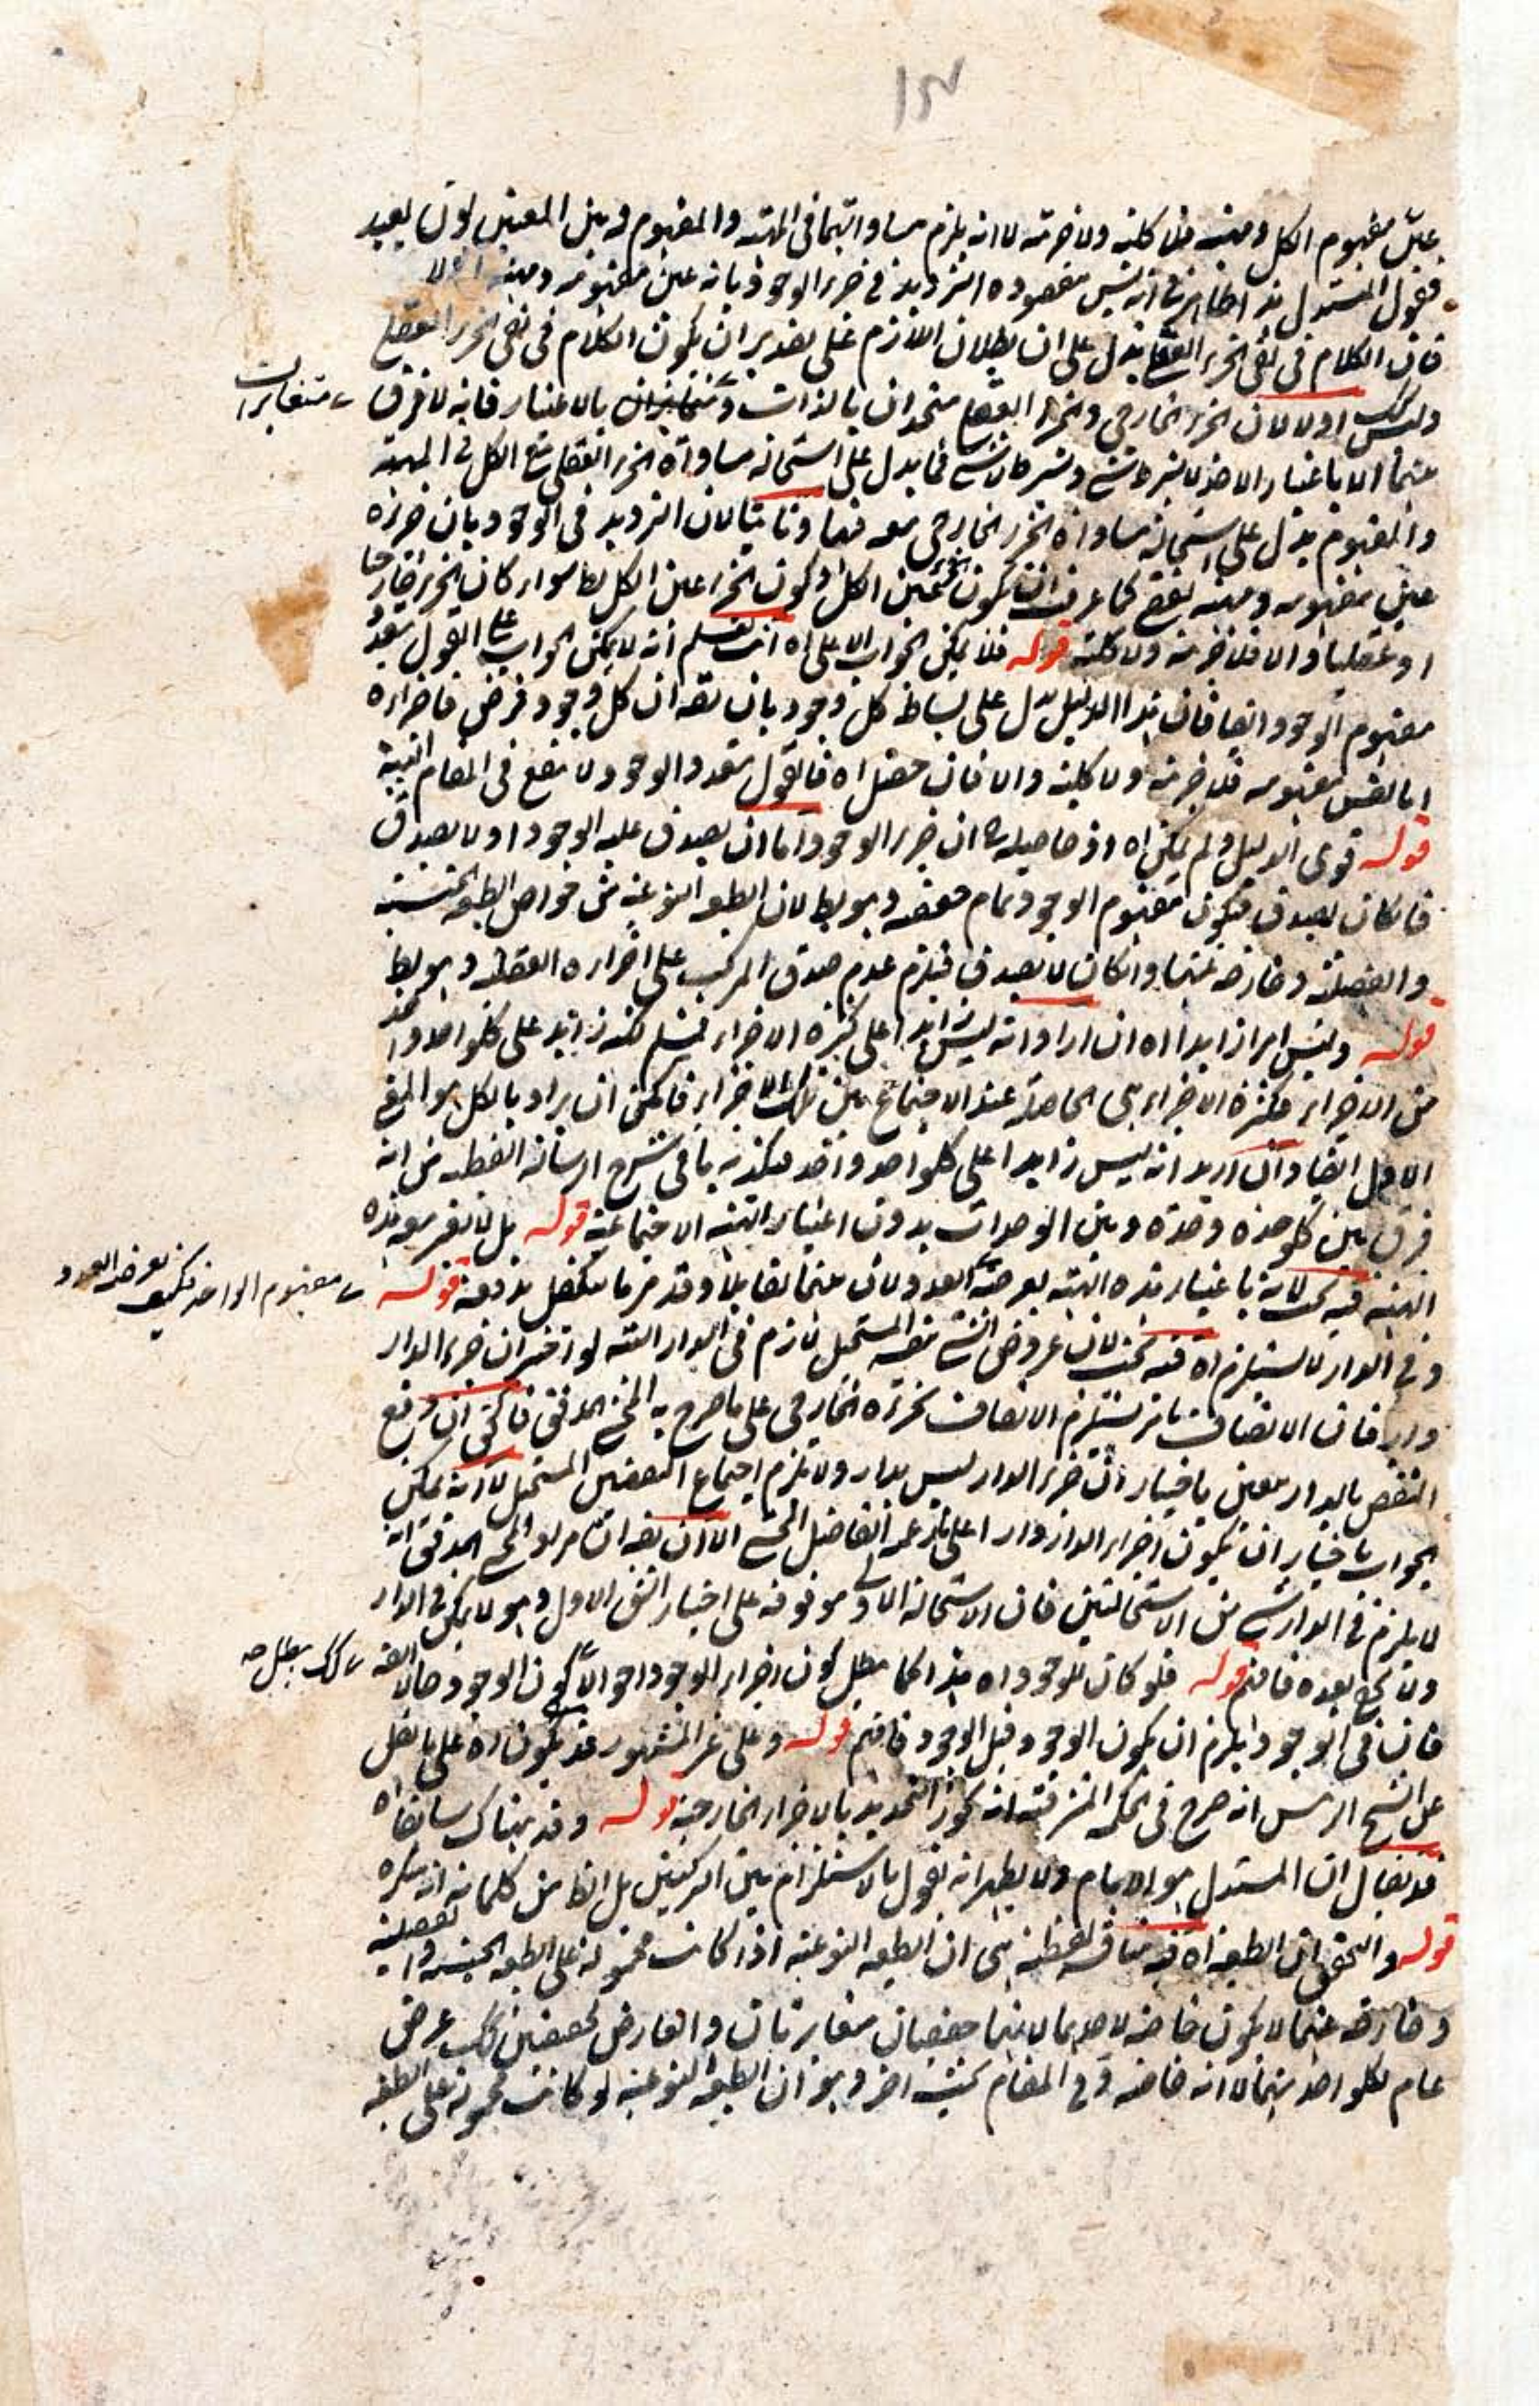 ١٥٧
عين مفهوم الكل ومهيته فلا كلية ولا جزئية لا انه يلزم مساواتهما فى المهية والمفهوم وبين المعنيين بون بعيد
فقول المستدل هذا ظاهر فى انه ليس مقصوده الترديد فى جزء الوجود بانه عين مفهومه ومهيته اولا
فان الكلام فى نفى الجزء العقلى يدل على ان بطلان اللازم على تقدير ان يكون الكلام فى نفى الجزء العقلى
وليس كك اولا لان الجزء الخارجى والجزء العقلى متحدان بالذات ومتغايران بالاعتبار فانه لا فرق
متغايران
بينهما الا باعتبار الاخذ لا بشرط شئ وبشرط لا شئ فما يدل على استحالة مساواة الجزء العقلى مع الكل فى المهية
والمفهوم يدل على استحالة مساواة الجزء الخارجى معه فيها وثانيا لان الترديد فى الوجود بان جزءه
عين مفهومه ومهيته يقع كما عرفت ان يكون عين الكل وكون الجزء عين الكل بط سواء كان الجزء خارجيا
او عقليا والا فلا جزئية ولا كلية قوله فلا يمكن الجواب الا على اه انت تعلم انه لا يمكن الجواب على القول بتعدد
مفهوم الوجود ايضا فان هذا الدليل يدل على بساطة كل وجود بان يقه ان كل وجود فرض فاجزاءه
اما نفس مفهومه فلا جزئية ولا كلية والا فان حصل اه فالقول بتعدد الوجود لا ينفع فى المقام البتة
قوله قوى الدليل ولم يمكن اه اذ حاصله ح ان جزء الوجود اما ان يصدق عليه الوجود او لا يصدق
فان كان يصدق فيكون مفهوم الوجود تمام حقيقته وهو بط لان الطبيعة النوعية من خواص الطبيعة الجنسية
والفصلية وخارجة عنها وان كان لا يصدق فيلزم عدم صدق المركب على اجزاءه العقلية وهو بط
قوله وليس امرا زايدا اه ان اراد انه ليس زايدا على كثرة الاجزاء فمسلم لكنه زايد على كل واحد واحد
من الاجزاء فكثرة الاجزاء هى الحاصلة عند الاجتماع بين تلك الاجزاء فالحق ان يراد بالكل هو المعنى
الاول ايضا وان اريد انه ليس زايدا على كل واحد واحد فيكذبه ما فى شرح الرسالة القطبية من انه
فرق بين كل وحدة وحدة وبين الوحدات بدون اعتبار الهيئة الاجتماعية قوله بل لا يعرض هذه
الهيئة فيه بحث لانه باعتبار هذه الهيئة يعرضه العدد ولان بينهما تقابلا وقد مر ما يتكفل بدفعه قوله
مفهوم الواحد فكيف يعرضه العدد
وفى الدار لا يستلزم اه فيه بحث لان عروض الشئ لنقيضه المستحيل لازم فى الدار البتة لو اختير ان جزء الدار
دار فان الاتصاف بامر يستلزم الاتصاف بجزئه الخارجى على ما صرح به المحشى المدقق فالحق ان دفع
النقض بالدار معين باختيار ان جزء الدار ليس بدار ولا يلزم اجتماع النقيضين المستحيل لا انه يمكن
الجواب باختيار ان يكون اجزاء الدار دارا على ما زعمه الفاضل المحشى الا ان يقه ان مراد المحشى المدقق انه
لا يلزم فى الدار شئ من الاستحالتين فان الاستحالة الاولى موقوفة على اختيار الشق الاول وهو لا يمكن فى الدار
ولا يخفى بعده فافهم قوله فلو كان للوجود اه هذا كما يبطل كون اجزاء الوجود احوالا كون الوجود حالا ايضه
كك يبطل صه
فان فى الوجود ايلزم ان يكون الوجود قبل الوجود فافهم قوله وعلى غير المشهور قد يكون اه على ما نقل
عن الشيخ الرئيس انه صرح فى الحكمة المشرقية انه يجوز التحديد بالاجزاء الخارجية قوله وقد بيناك سابقا اه
قد يقال ان المستدل هو الامام ولا يظهر انه يقول بالاستلزام بين التركيبين بل الظ من كلماته انه ينكره
قوله والتحقق ان الطبيعة اه فيه مناقشة لفظية هى ان الطبيعة النوعية اذا كانت محمولة على الطبيعة الجنسية والفصلية
وخارجة عنهما لا يكون خاصة لاحدهما لانهما حقيقتان متغايرتان والعارض لحقيقتين كك عرض
عام لكل واحد منهما لا انه خاصة وفى المقام بحث اخر وهو ان الطبيعة النوعية لو كانت محمولة على الطبيعة